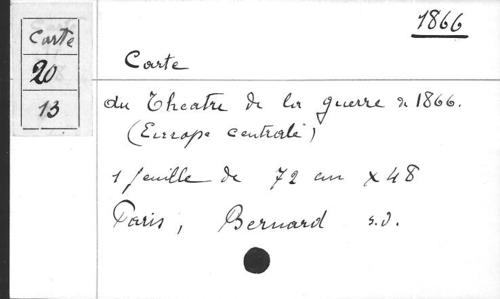 1866
Carte
20
13
Carte
du Theatre de la guerre de 1866.
(Europe centrale)
1 feuille de 72 cm x 48
Paris, Bernard s.d.